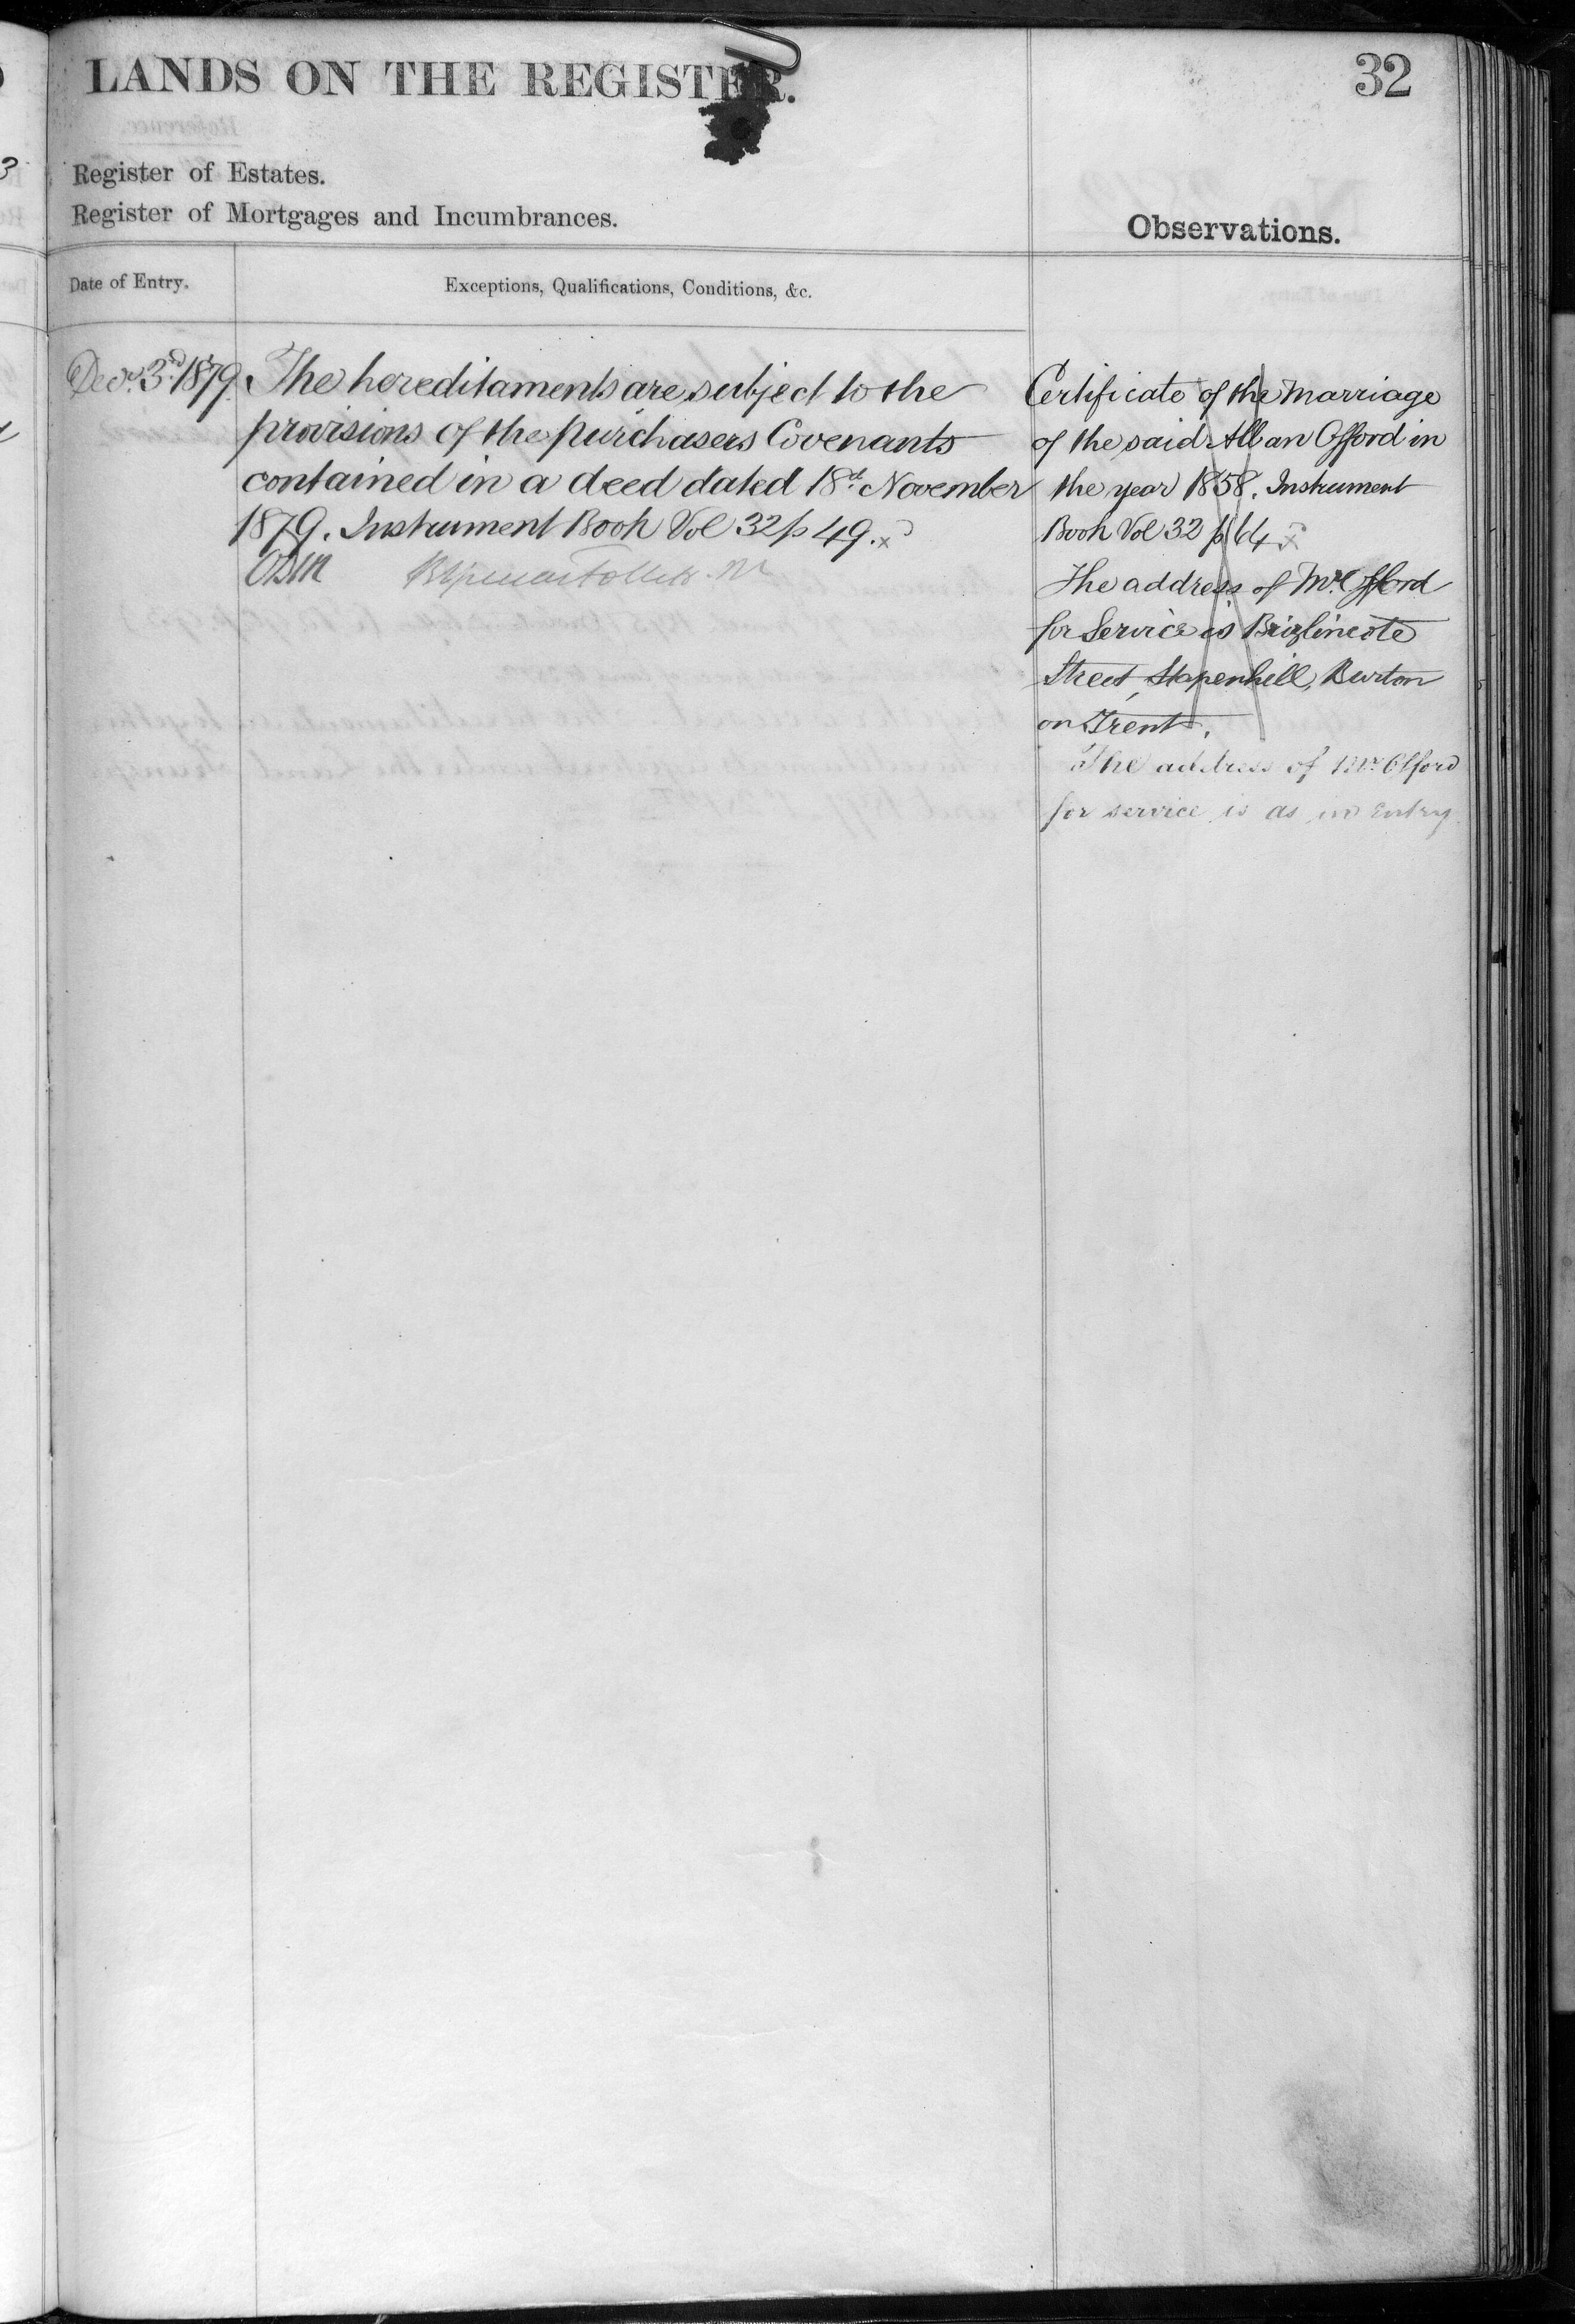 LANDS ON THE REGISTER.
32
Register of Estates.
Register of Mortgages and Incumbrances.
Observations.
Date of Entry.
Exceptions, Qualifications, Conditions, &c.
Decr. 3rd 1879.
The hereditaments are subject to the
provisions of the purchasers Covenants
contained in a deed dated 18th November
1879. Instrument Book Vol 32 p 49. x
Certificate of the marriage
of the said Allan Offord in
the year 1858. Instrument
Book Vol 32 p 64 x
The address of Mr. Offord
for Service is Brizlincote
Street, Stapenhill, Burton
on Trent.
The address of Mr. Offord
for service is as in Entry